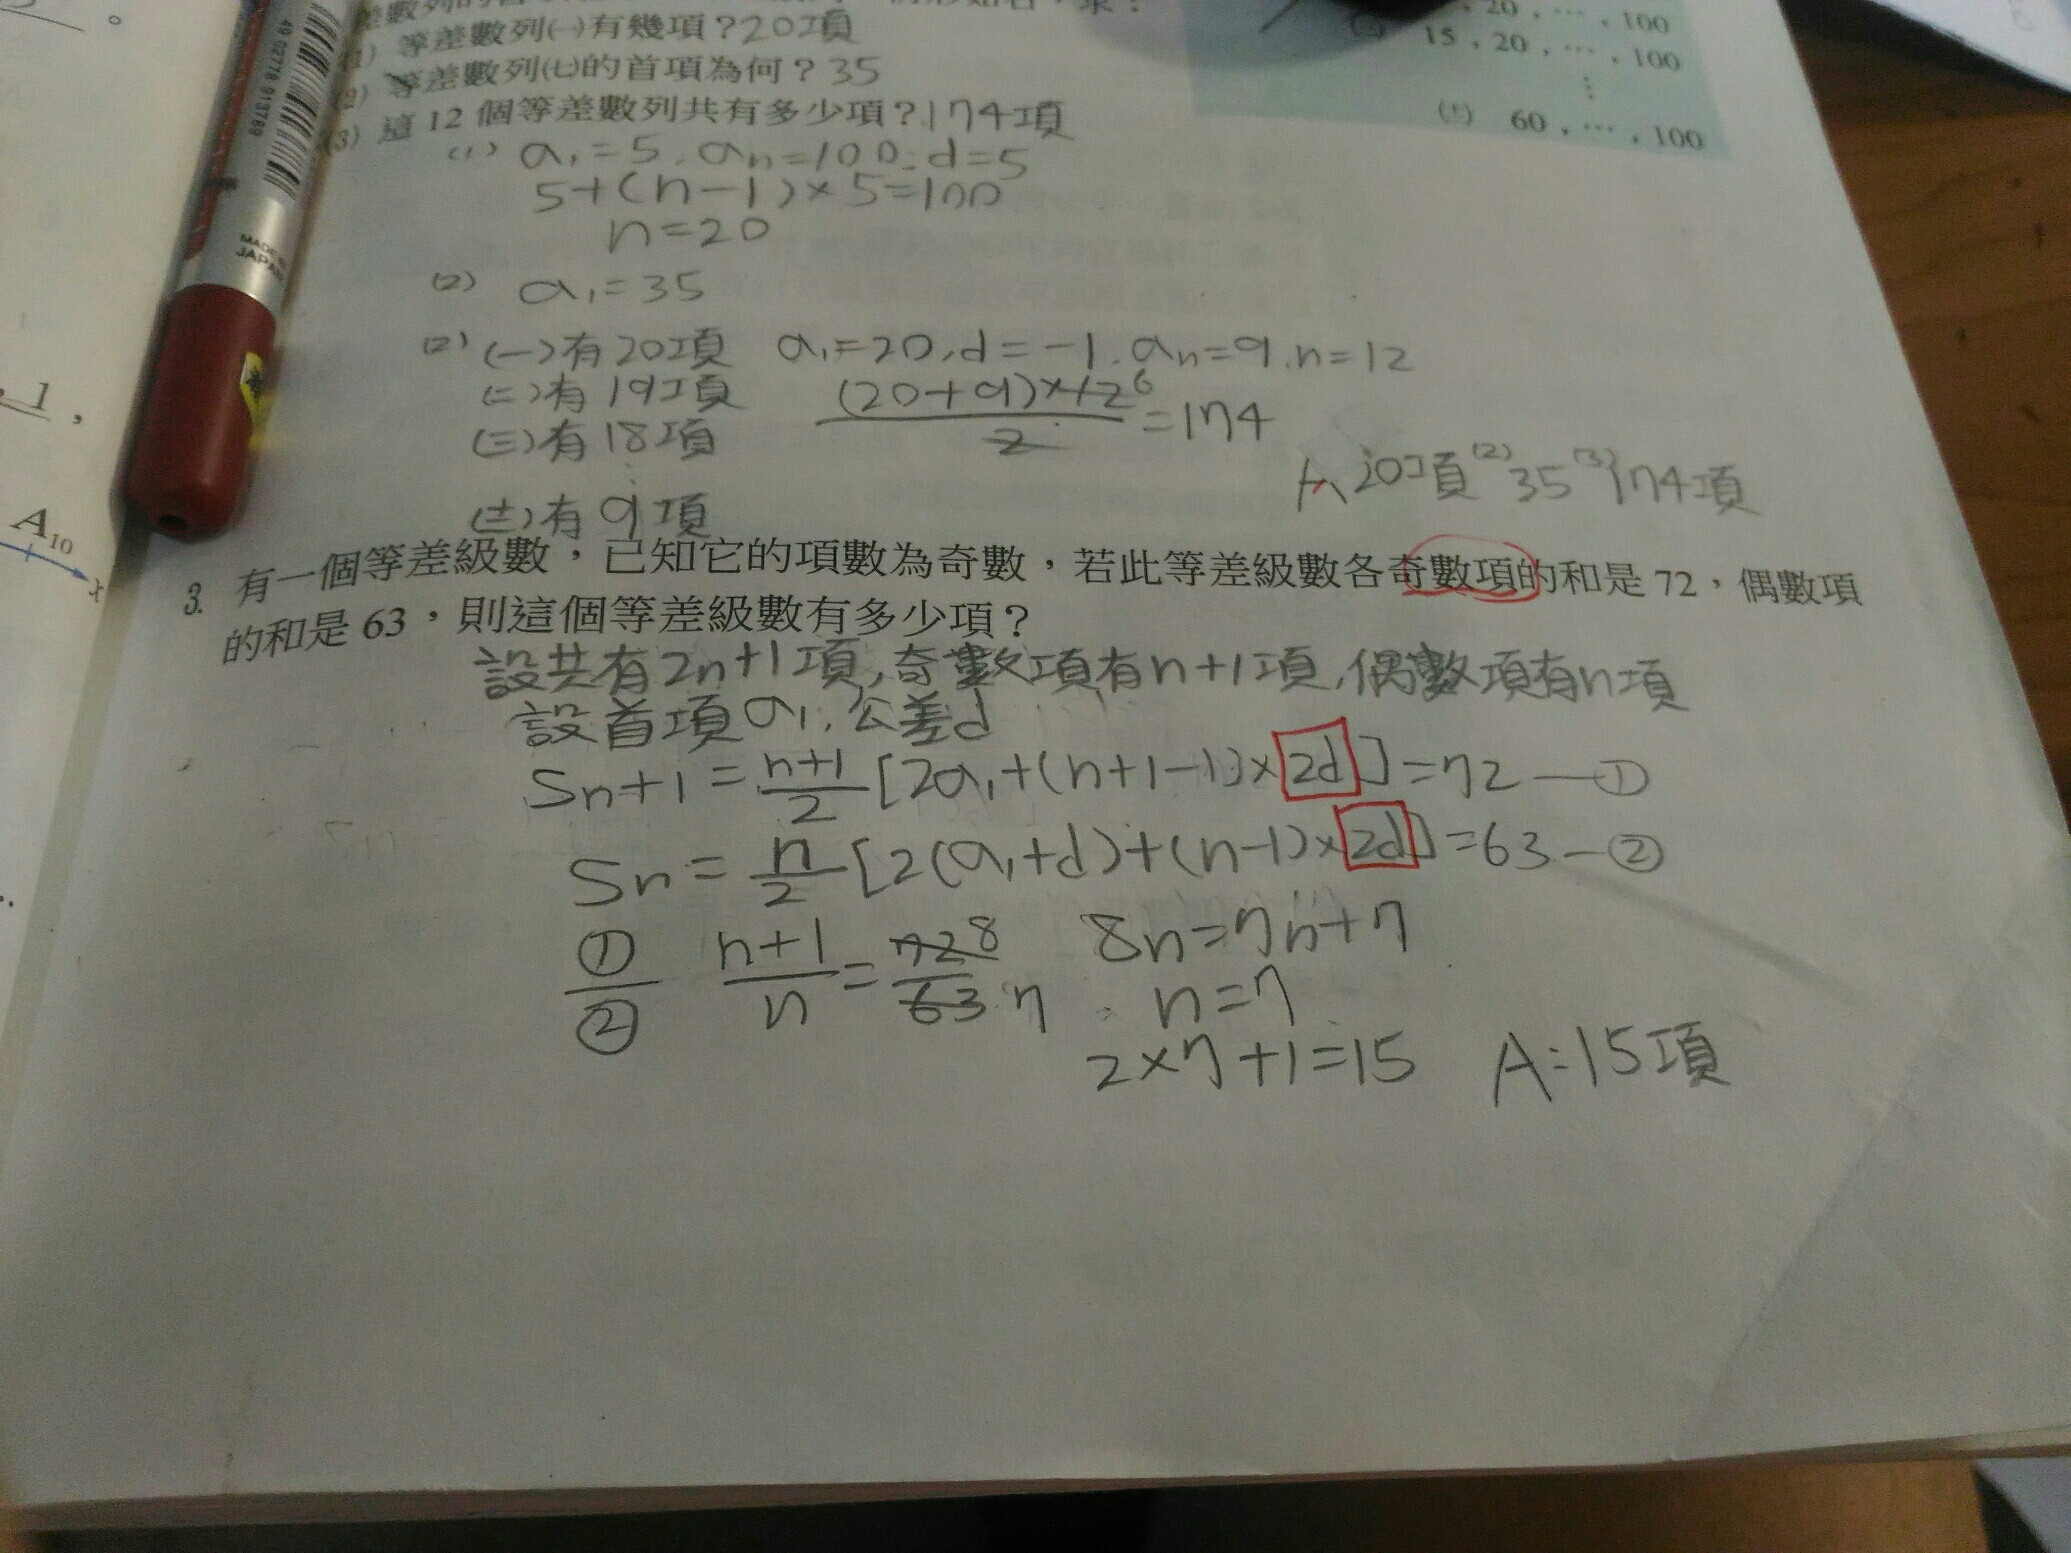 等差數列㈠有幾項？20項
(2) 等差數列㈦的首項為何？35
(3) 這 12 個等差數列共有多少項？174項
20，…，100
15，20，…，100
⋮
60，…，100
49 02778 913769
MADE IN
JAPAN
(1) a₁=5. aₙ=100. d=5
5+(n-1)×5=100
n=20
(2) a₁=35
(2) (一)有20項 a₁=20.d=-1.aₙ=9.n=12
(二)有19項 (20+9)×12 6 / 2 =174
(三)有18項
(士)有9項
A 20項 (2) 35 (3) 174項
1，
A₁₀
x
3. 有一個等差級數，已知它的項數為奇數，若此等差級數各奇數項的和是 72，偶數項
的和是 63，則這個等差級數有多少項？
設共有2n+1項,奇數項有n+1項,偶數項有n項
設首項a₁.公差d
Sn+1=n+1/2[2a₁+(n+1-1)×2d]=72—①
Sn=n/2[2(a₁+d)+(n-1)×2d]=63—②
①/② n+1/n=72 8/63 7 8n=7n+7
n=7
2×7+1=15 A:15項